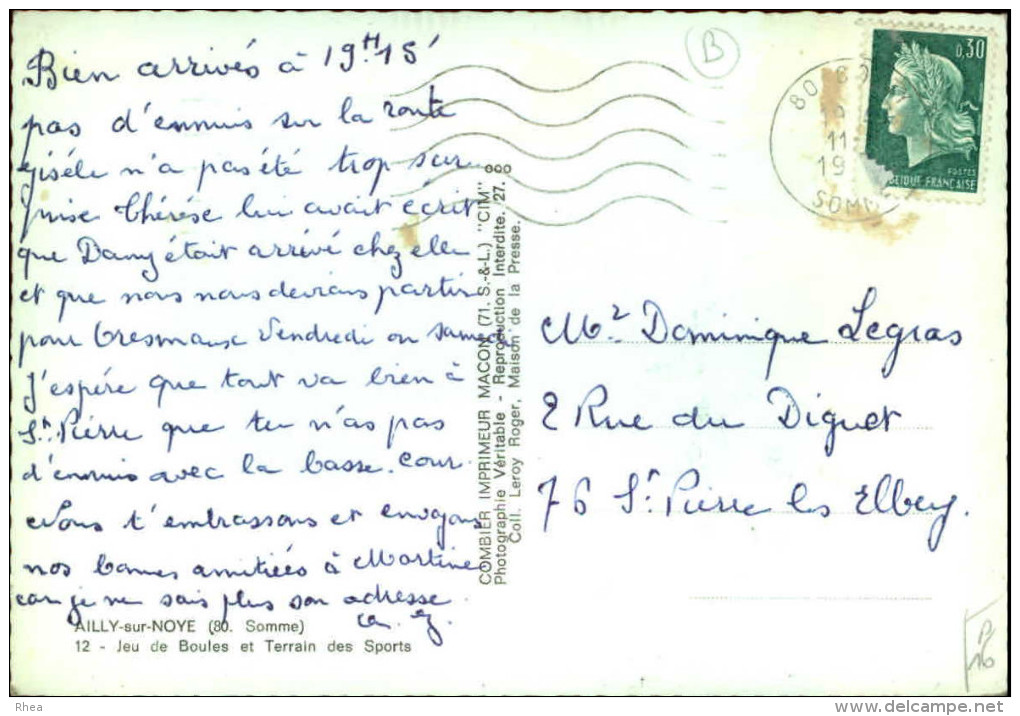 Bien arrivés à 19H15'
pas d'ennuis sur la route
Gisèle n'a pas été trop sur
prise Thérèse lui avait écrit
que Dany était arrivé chez elle
et que nous nous devions partir
pour Tresmaux Vendredi ou samedi
J'espère que tout va bien à
St Pierre que tu n'as pas
d'ennuis avec la basse-cour.
Nous t'embrassons et envoyons
nos bonnes amitiées à Martine
car je ne sais plus son adresse
AILLY-sur-NOYE (80. Somme)
12 - Jeu de Boules et Terrain des Sports
COMBIER IMPRIMEUR MACON (71. S.-&-L.) "CIM"
Photographie Véritable - Reproduction Interdite. 27.
Coll. Leroy Roger, Maison de la Presse.
B
80
11
19
SOM
0,30
POSTES
FRANÇAISE
Mr Dominique Legras
2 Rue du Diguet
76 St Pierre les Elbeuf.
Rhea
www.delcampe.net